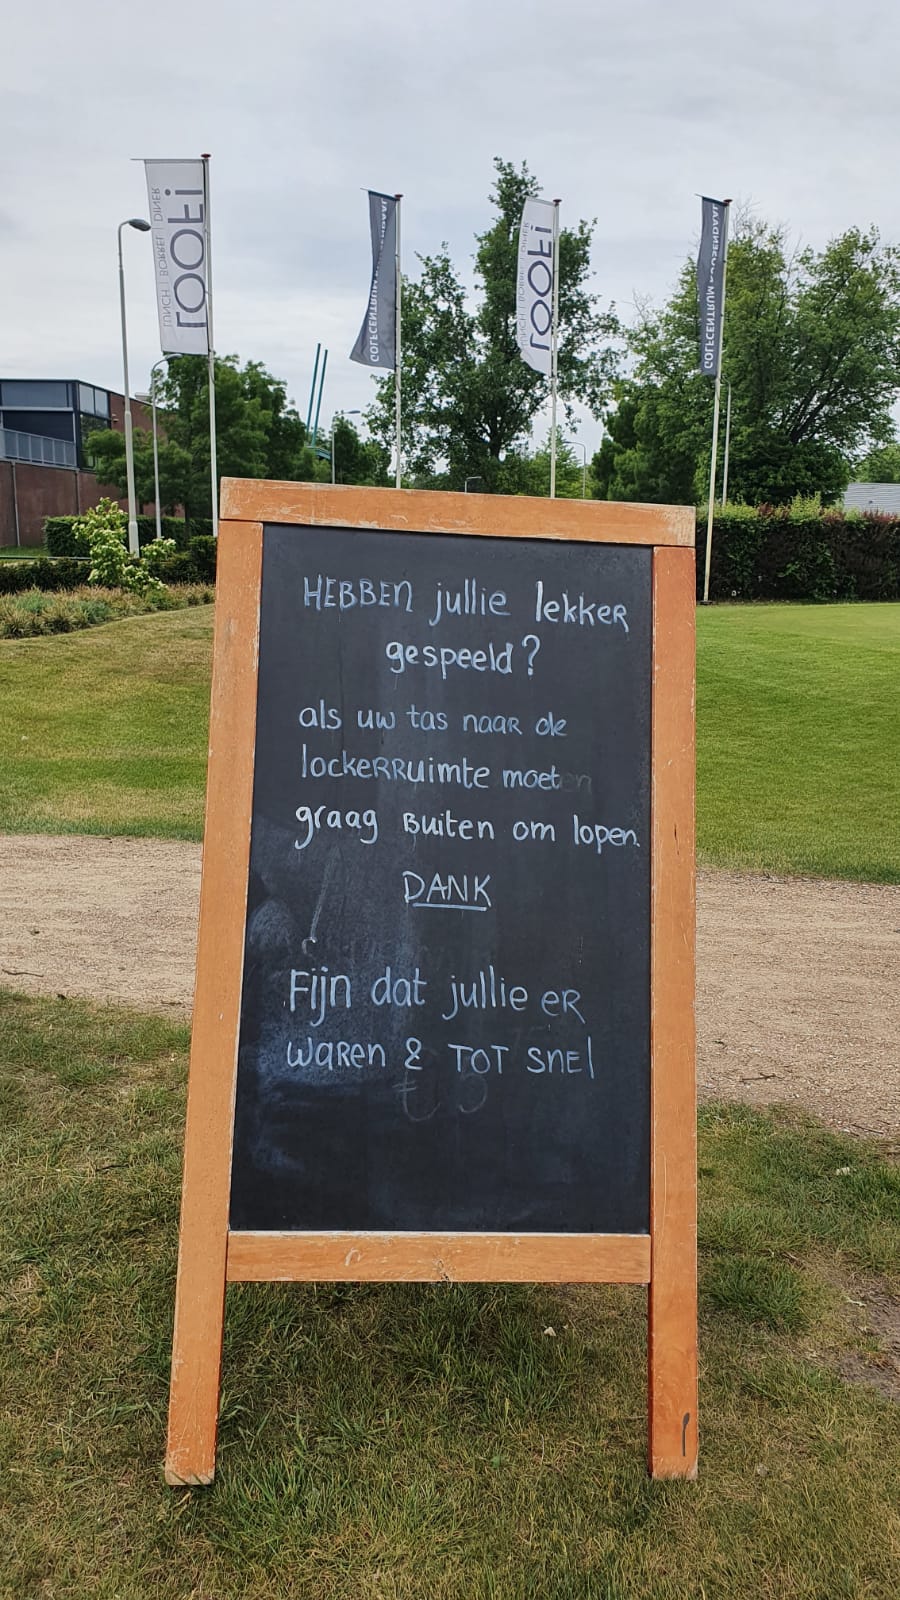 LOOF!
LUNCH | BORREL | DINER
GOLFCENTRUM ROOSENDAAL
LOOF!
LUNCH | BORREL | DINER
GOLFCENTRUM ROOSENDAAL
HEBBEN jullie lekker
gespeeld?
als uw tas naar de
lockerruimte moet
graag Buiten om lopen.
DANK
Fijn dat jullie er
waren & TOT snel